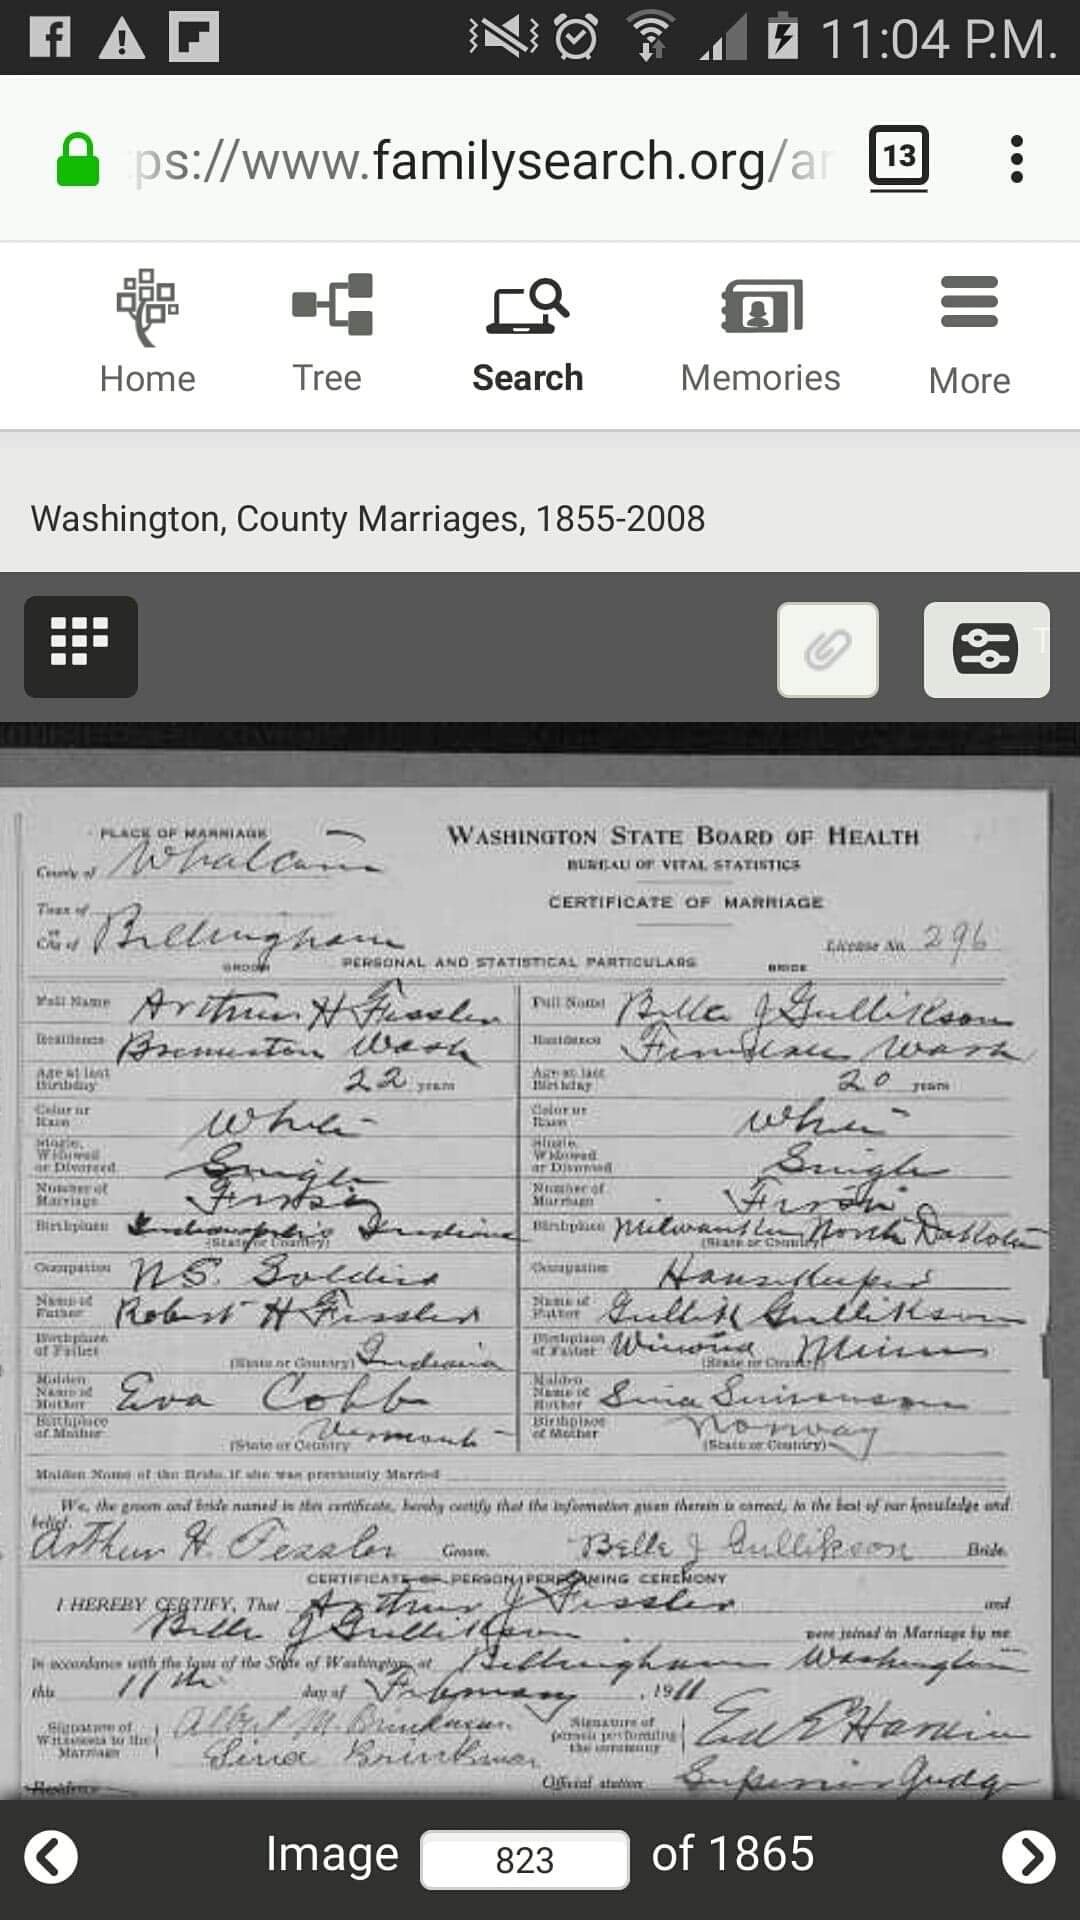 11:04 P.M.
ps://www.familysearch.org/ar
13
Home Tree Search Memories More
Washington, County Marriages, 1855-2008
PLACE OF MARRIAGE
WASHINGTON STATE BOARD OF HEALTH
County of Whatcom
BUREAU OF VITAL STATISTICS
CERTIFICATE OF MARRIAGE
Town of
or
City of Bellingham
License No. 296
PERSONAL AND STATISTICAL PARTICULARS
GROOM BRIDE
Full Name Arthur H Fessler Full Name Bella J Gullikson
Residence Bremerton Wash Residence Ferndale Wash
Age at last Birthday 22 years Age at last Birthday 20 years
Color or Race White Color or Race White
Single, Widowed or Divorced Single Single, Widowed or Divorced Single
Number of Marriage First Number of Marriage First
Birthplace Indianapolis Indiana Birthplace North Dakota
(State or Country) (State or Country)
Occupation U.S. Soldier Occupation Housekeeper
Name of Father Robert H Fessler Name of Father Gullik Gullikson
Birthplace of Father Indiana Birthplace of Father Winona Minn
(State or Country) (State or Country)
Maiden Name of Mother Eva Cobb Maiden Name of Mother Sina
Birthplace of Mother Vermont Birthplace of Mother Norway
(State or Country) (State or Country)
Maiden Name of the Bride, if she was previously Married
We, the groom and bride named in this certificate, hereby certify that the information given therein is correct, to the best of our knowledge and
belief.
Arthur H. Fessler Groom. Belle J Gullikson Bride.
CERTIFICATE OF PERSON PERFORMING CEREMONY
I HEREBY CERTIFY, That Arthur J Fessler and
Belle J Gullikson were joined in Marriage by me
in accordance with the laws of the State of Washington, at Bellingham Washington
this 11th day of February, 1911
Signature of Witnesses to the Marriage Albert M Brinkman
Sina Brinkman
Signature of person performing the ceremony Ed E
Official station Superior Judge
Residence
Image 823 of 1865